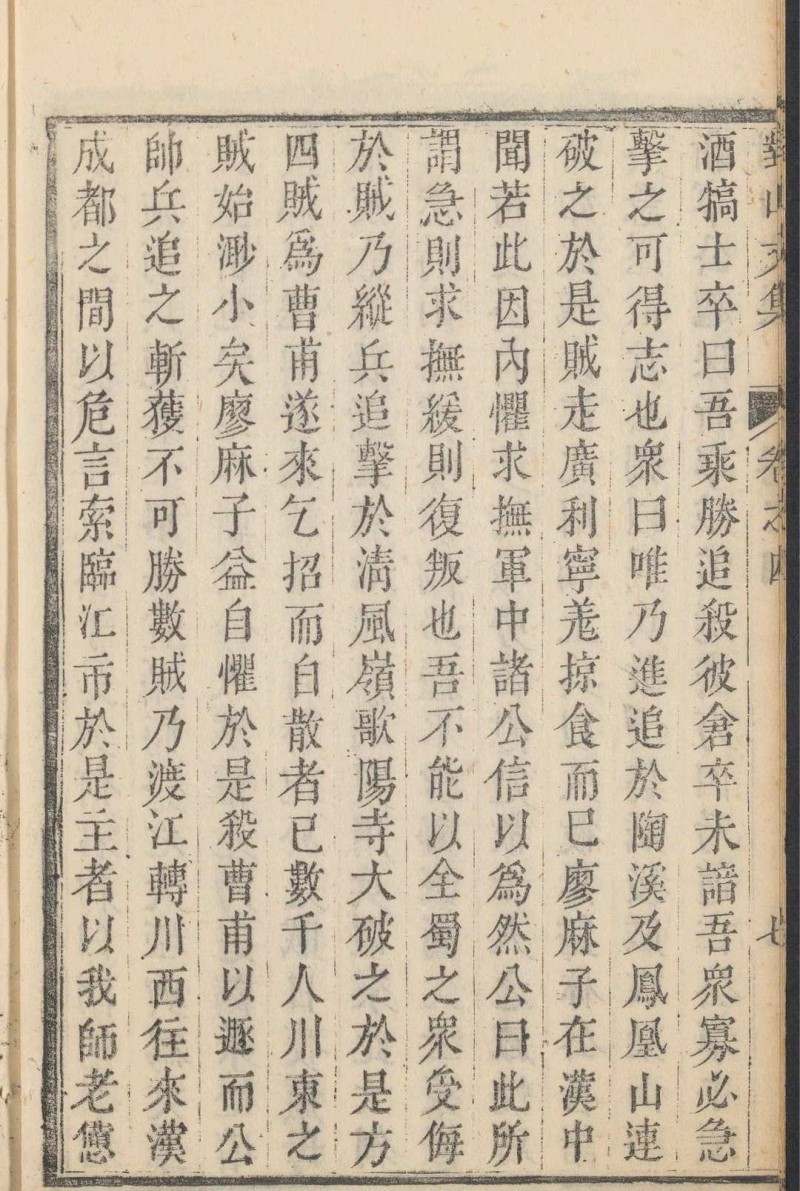 對山文集 卷之四 七
酒犒士卒曰吾乘勝追殺彼倉卒未諳吾衆寡必急
擊之可得志也衆曰唯乃進追於陶溪及鳳凰山連
破之於是賊走廣利寧羗掠食而已廖麻子在漢中
聞若此因內懼求撫軍中諸公信以爲然公曰此所
謂急則求撫緩則復叛也吾不能以全蜀之衆受侮
於賊乃縱兵追擊於清風嶺歌陽寺大破之於是方
四賊爲曹甫遂來乞招而自散者已數千人川東之
賊始渺小矣廖麻子益自懼於是殺曹甫以遯而公
帥兵追之斬獲不可勝數賊乃渡江轉川西徃來漢
成都之間以危言索臨江市於是主者以我師老憊